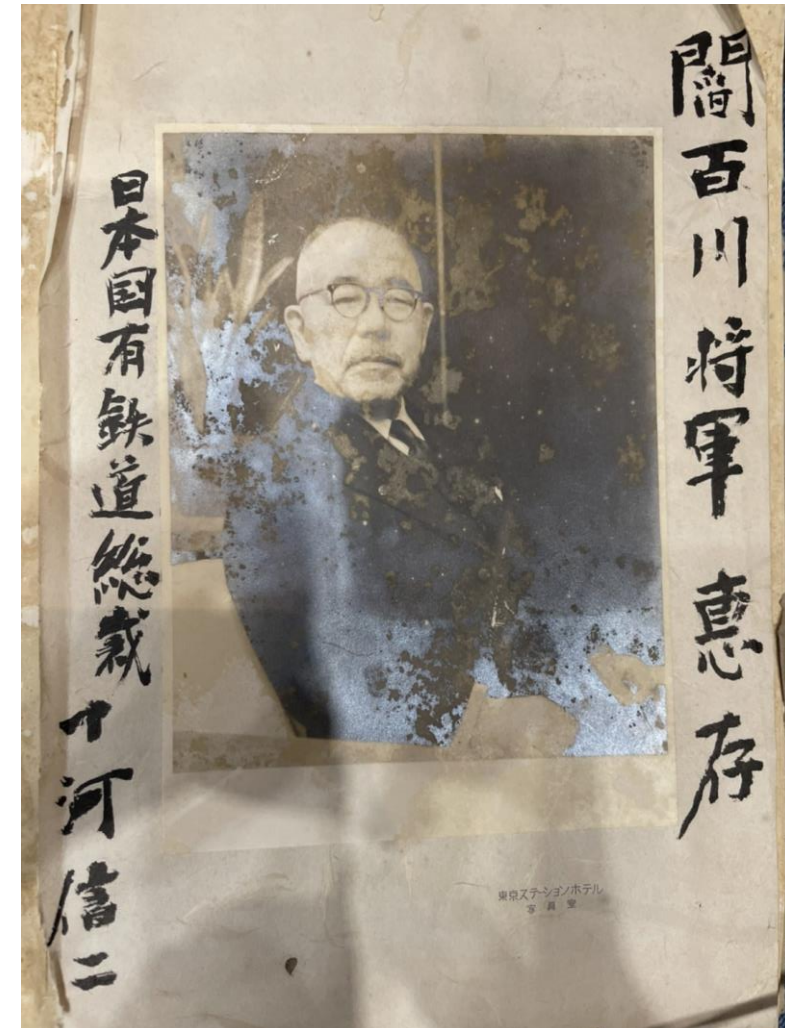 閻百川将軍 恵存
日本国有鉄道総裁
十河信二
東京ステーションホテル
写真室